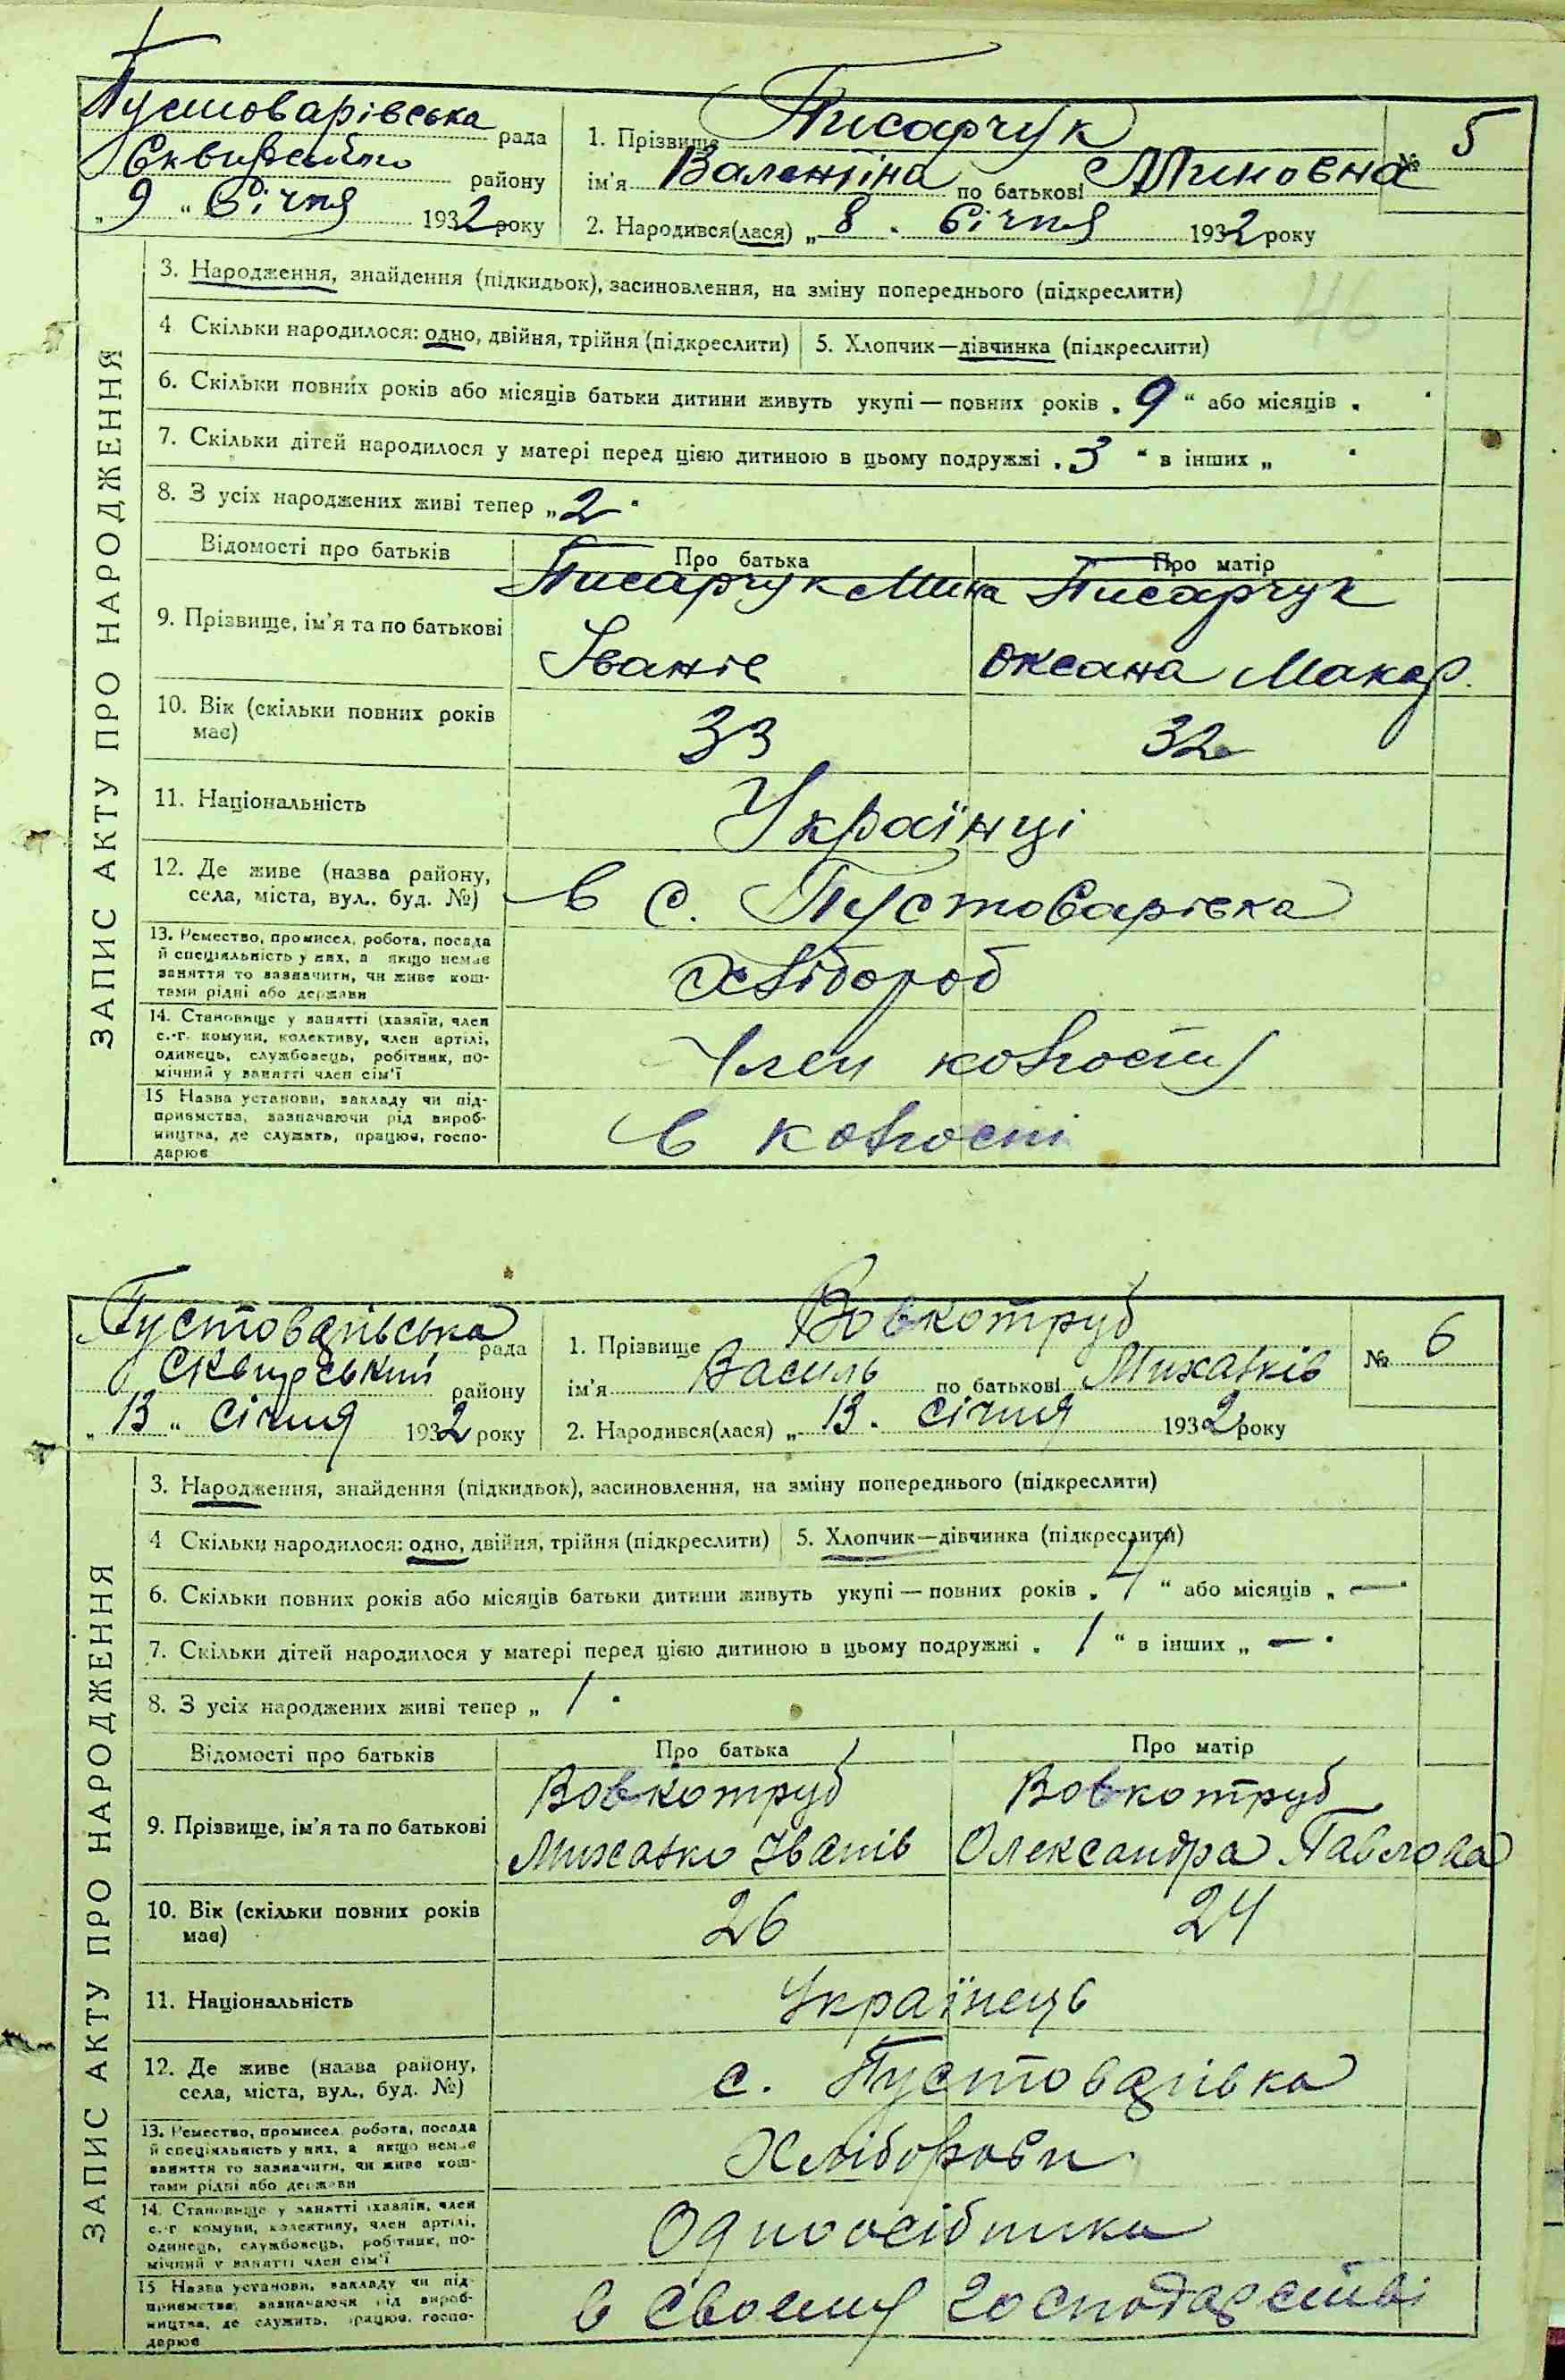 Пустоварівська рада
Сквирський району
„9“ Січня 1932 року
1. Прізвище Писарчук
ім'я Валентіна по батькові Миновна
№ 5
2. Народився(лася) „8“ Січня 1932 року
46
ЗАПИС АКТУ ПРО НАРОДЖЕННЯ
3. Народження, знайдення (підкидьок), засиновлення, на зміну попереднього (підкреслити)
4 Скільки народилося: одно, двійня, трійня (підкреслити) 5. Хлопчик—дівчинка (підкреслити)
6. Скільки повних років або місяців батьки дитини живуть укупі — повних років „9“ або місяців „
7. Скільки дітей народилося у матері перед цією дитиною в цьому подружжі „3“ в інших „
8. З усіх народжених живі тепер „2“
Відомості про батьків Про батька Про матір
9. Прізвище, ім'я та по батькові Писарчук Мина Іванів Писарчук Оксана Макар.
10. Вік (скільки повних років має) 33 32
11. Національність Українці
12. Де живе (назва району, села, міста, вул., буд. №) в с. Пустоварівка
13. Ремество, промисел, робота, посада й спеціяльність у них, а якщо немає заняття то зазначити, чи живе коштами рідні або держави Хлібороб
14. Становище у занятті (хазяїн, член с.-г. комуни, колективу, член артілі, одинець, службовець, робітник, помічний у занятті член сім'ї Член колгоспу
15 Назва установи, закладу чи підприємства, зазначаючи рід виробництва, де служить, працює, господарює в колгоспі
Пустоварівська рада
Сквирський району
„13“ Січня 1932 року
1. Прізвище Вовкотруб
ім'я Василь по батькові Михалків
№ 6
2. Народився(лася) „13“ Січня 1932 року
ЗАПИС АКТУ ПРО НАРОДЖЕННЯ
3. Народження, знайдення (підкидьок), засиновлення, на зміну попереднього (підкреслити)
4 Скільки народилося: одно, двійня, трійня (підкреслити) 5. Хлопчик—дівчинка (підкреслити)
6. Скільки повних років або місяців батьки дитини живуть укупі — повних років „4“ або місяців „—“
7. Скільки дітей народилося у матері перед цією дитиною в цьому подружжі „1“ в інших „—“
8. З усіх народжених живі тепер „1“
Відомості про батьків Про батька Про матір
9. Прізвище, ім'я та по батькові Вовкотруб Михалко Іванів Вовкотруб Олександра Павлова
10. Вік (скільки повних років має) 26 24
11. Національність Українець
12. Де живе (назва району, села, міста, вул., буд. №) с. Пустоварівка
13. Ремество, промисел робота, посада й спеціяльність у них, а якщо немає заняття то зазначити, чи живе коштами рідні або держави Хлібороби
14. Становище у занятті (хазяїн, член с.-г. комуни, колективу, член артілі, одинець, службовець, робітник, помічний у занятті член сім'ї Одноосібники
15 Назва установи, закладу чи підприємства зазначаючи рід виробництва, де служить, працює, господарює в своєму господарстві